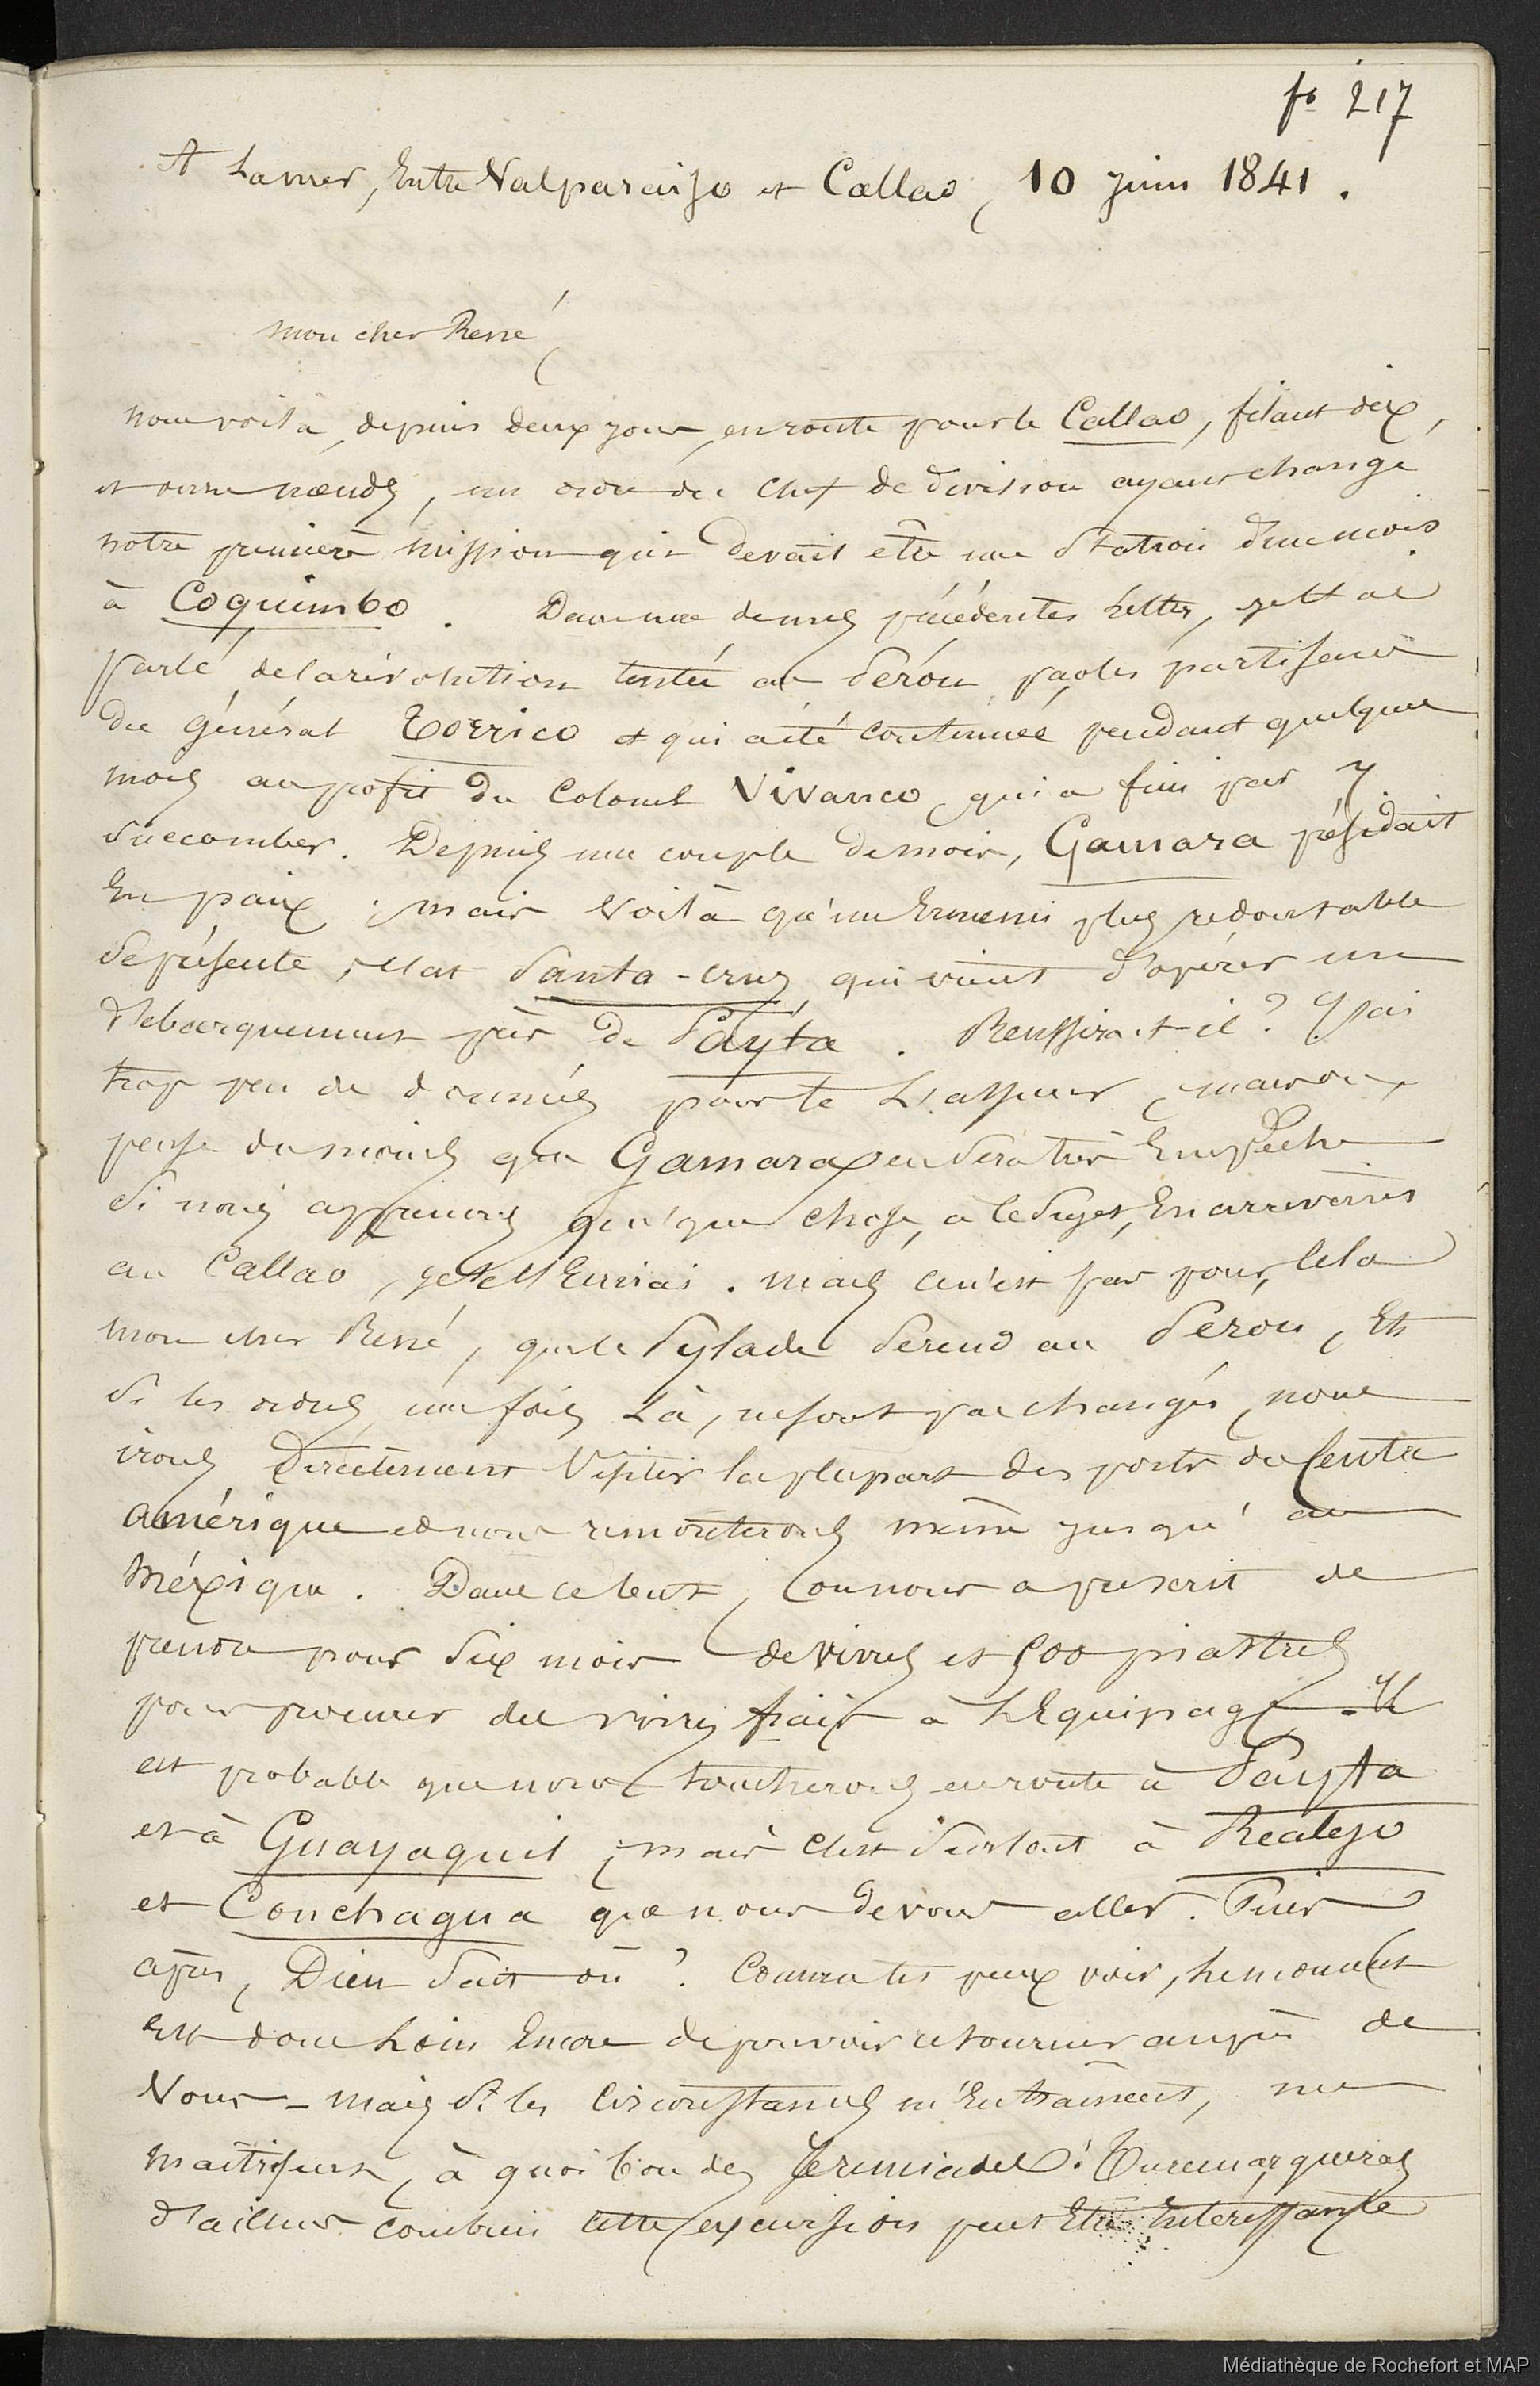 fo 217
A La mer, Entre Valparaiso et Callao, 10 juin 1841.
mon cher René,
nous voilà, depuis deux jours, en route pour le Callao, filant dix,
et onze nœuds, un ordre du chef de division ayant changé
notre première mission qui devait être une Station d'un mois
à Coquimbo. Dans une de mes précédentes Lettres, je t'ai
parlé de la révolution tentée au Pérou par les partisans
du Général Torrico et qui a été continuée pendant quelques
mois au profit du Colonel Vivanco, qui a fini par y
Succomber. Depuis une couple de mois, Gamara présidait
En paix; mais Voilà qu'un Ennemi plus redoutable
Se présente, c'est Santa-Cruz qui vient d'opérer un
débarquement près de Payta. Reussira-t-il? J'ai
trop peu de données pour te L'assurer, mais on
pense du moins que Gamara en Sera très Empêché
Si nous apprenons quelque chose, à ce Sujet, En arrivant
au Callao, je te l'Ecrirai. mais ce n'est pas pour cela
mon cher René, que le Pylade Se rend au Pérou, Et
Si les ordres, une fois Là, ne sont pas changés, nous
irons Directement Visiter la plupart des ports du Centre
Amérique et nous remonterons même jusqu'au
Méxique. Dans ce but, on nous a prescrit de
prendre pour Six mois de vivres et 500 piastres
pour procurer des vivres frais à L'Equipage. Il
est probable que nous toucherons en route à Payta
et à Guayaquil, mais c'est Surtout à Realejo
et Conchagua que nous devons aller. Puis
après, Dieu Sait où? Comme tu peux voir, le moment
est donc Loin Encore de pouvoir retourner auprès de
Vous - mais Si les Circonstances m'Entraînent, me
maîtrisent, à quoi bon des Jérémiades! Tu remarqueras
d'ailleurs combien cette excursion peut Etre Intéressante
Médiathèque de Rochefort et MAP